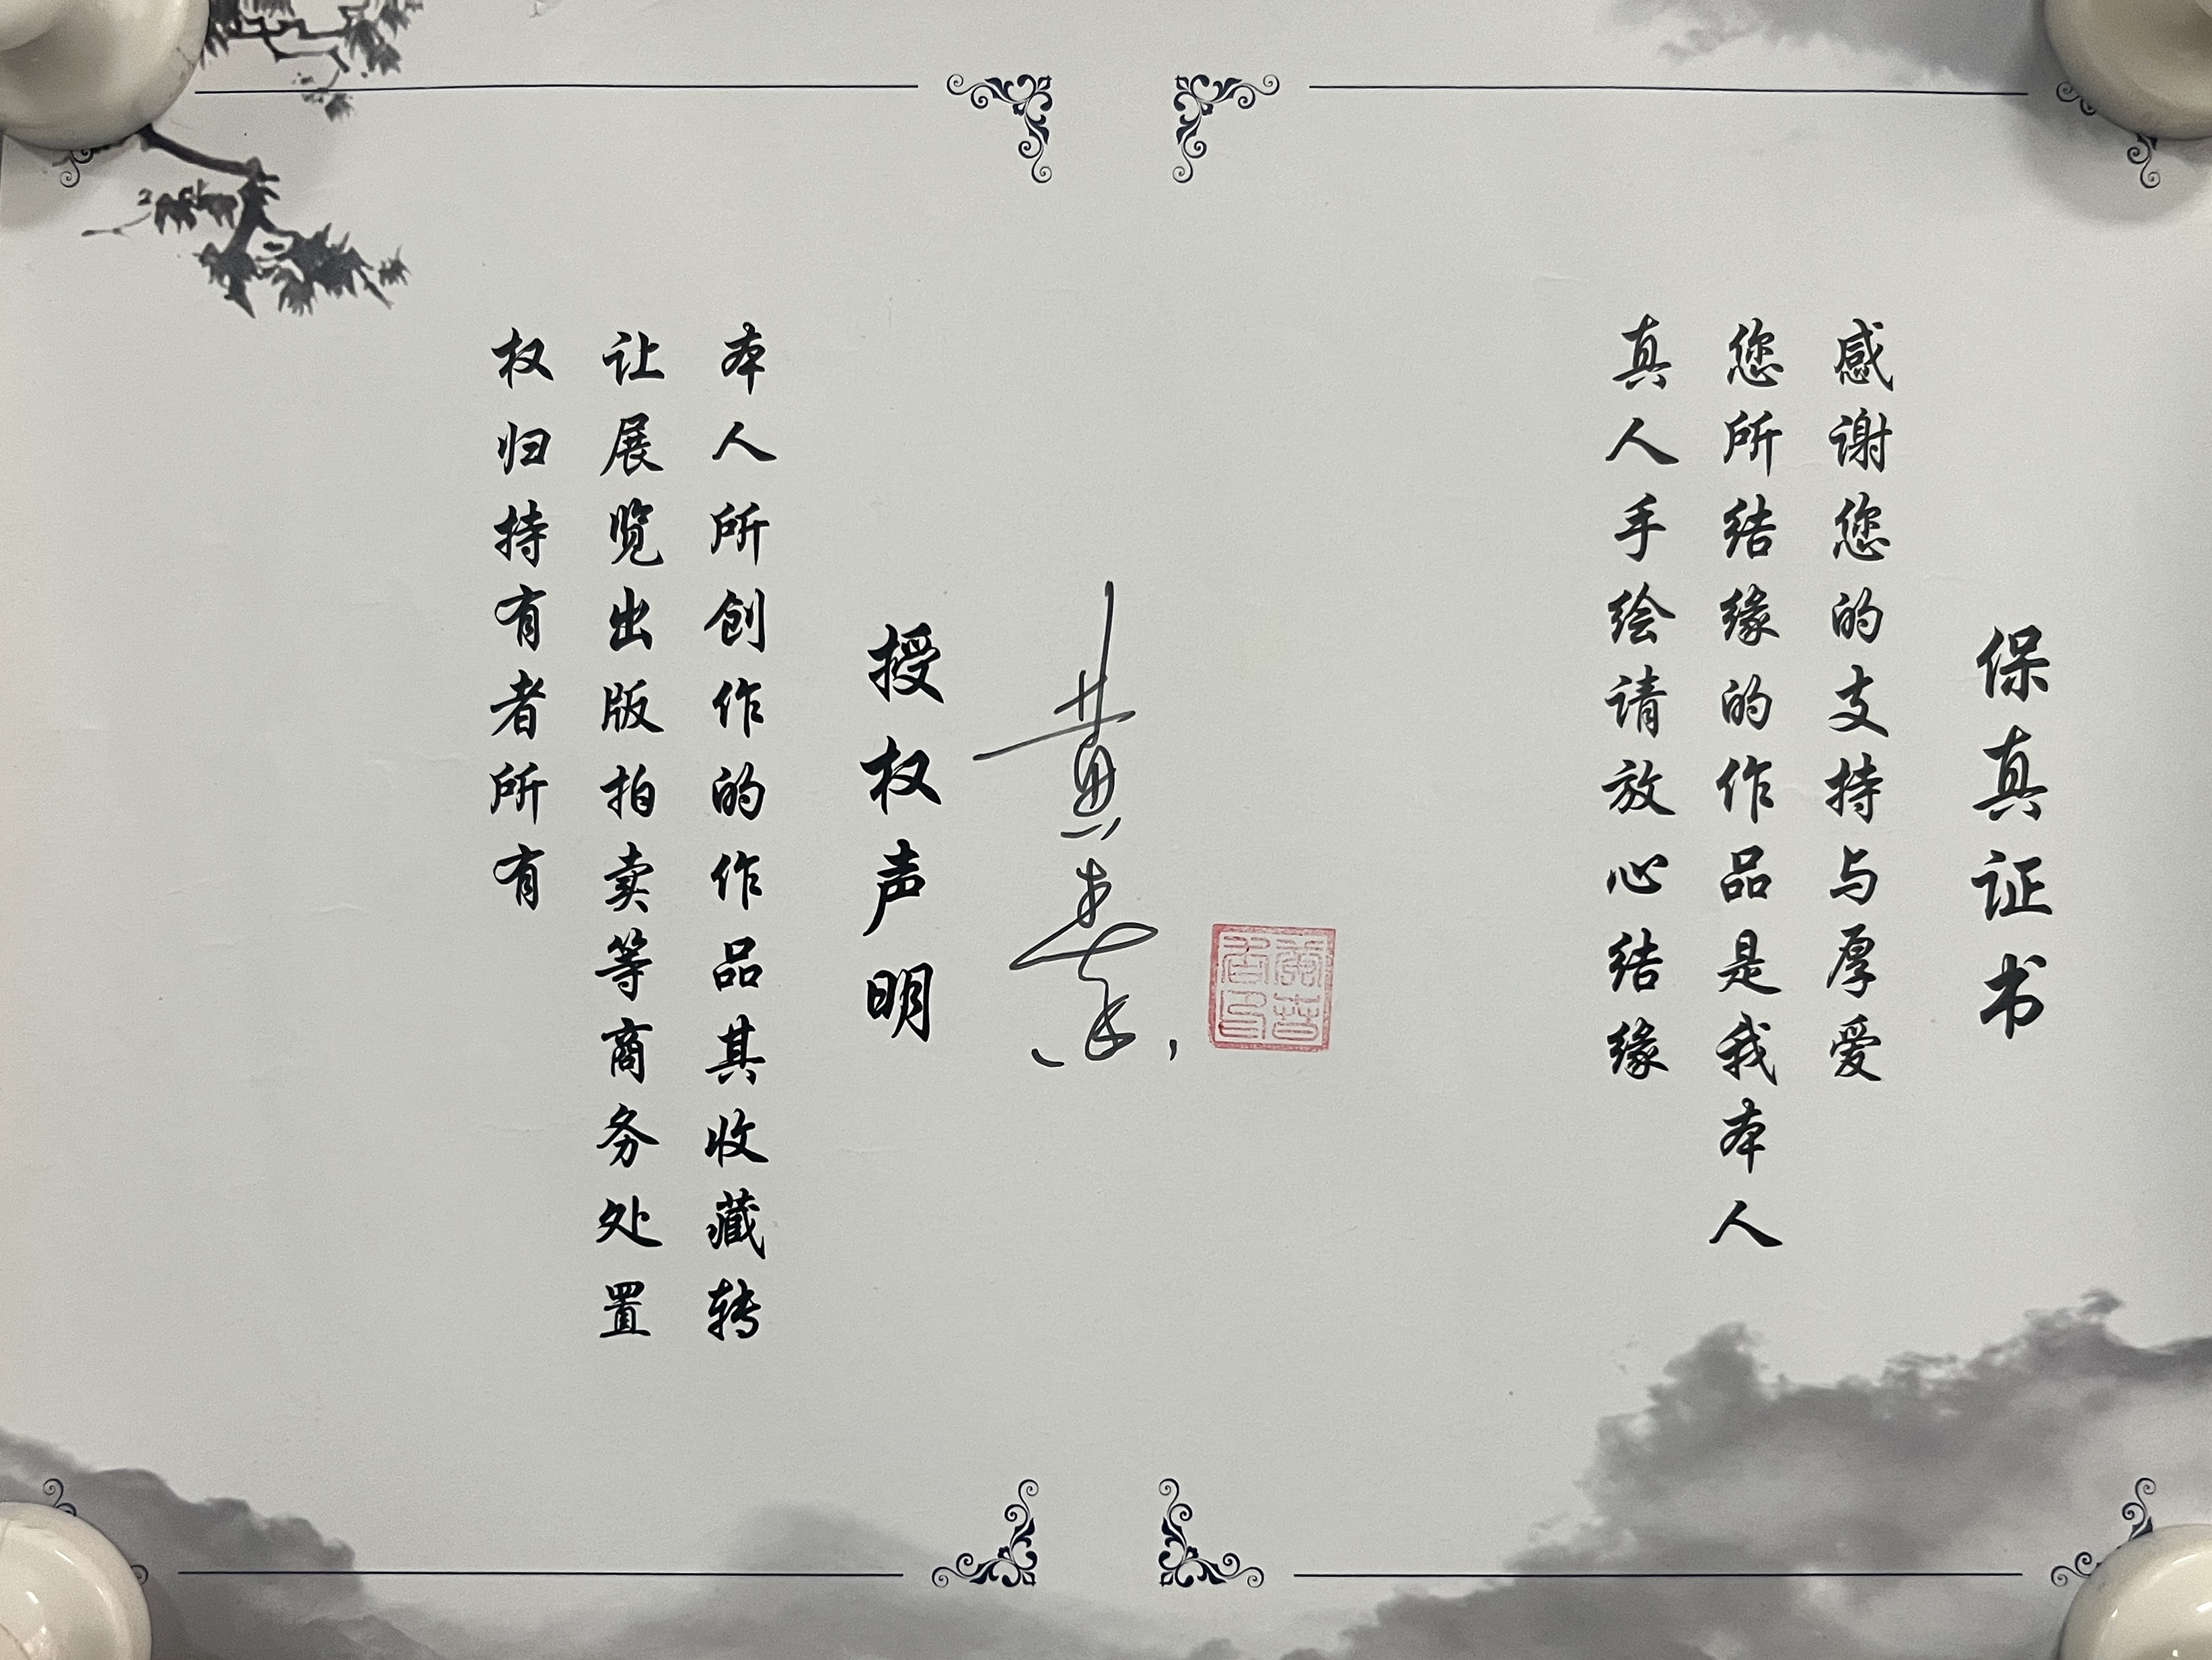 保真证书
感谢您的支持与厚爱
您所结缘的作品是我本人
真人手绘请放心结缘
黄
授权声明
本人所创作的作品其收藏转
让展览出版拍卖等商务处置
权归持有者所有